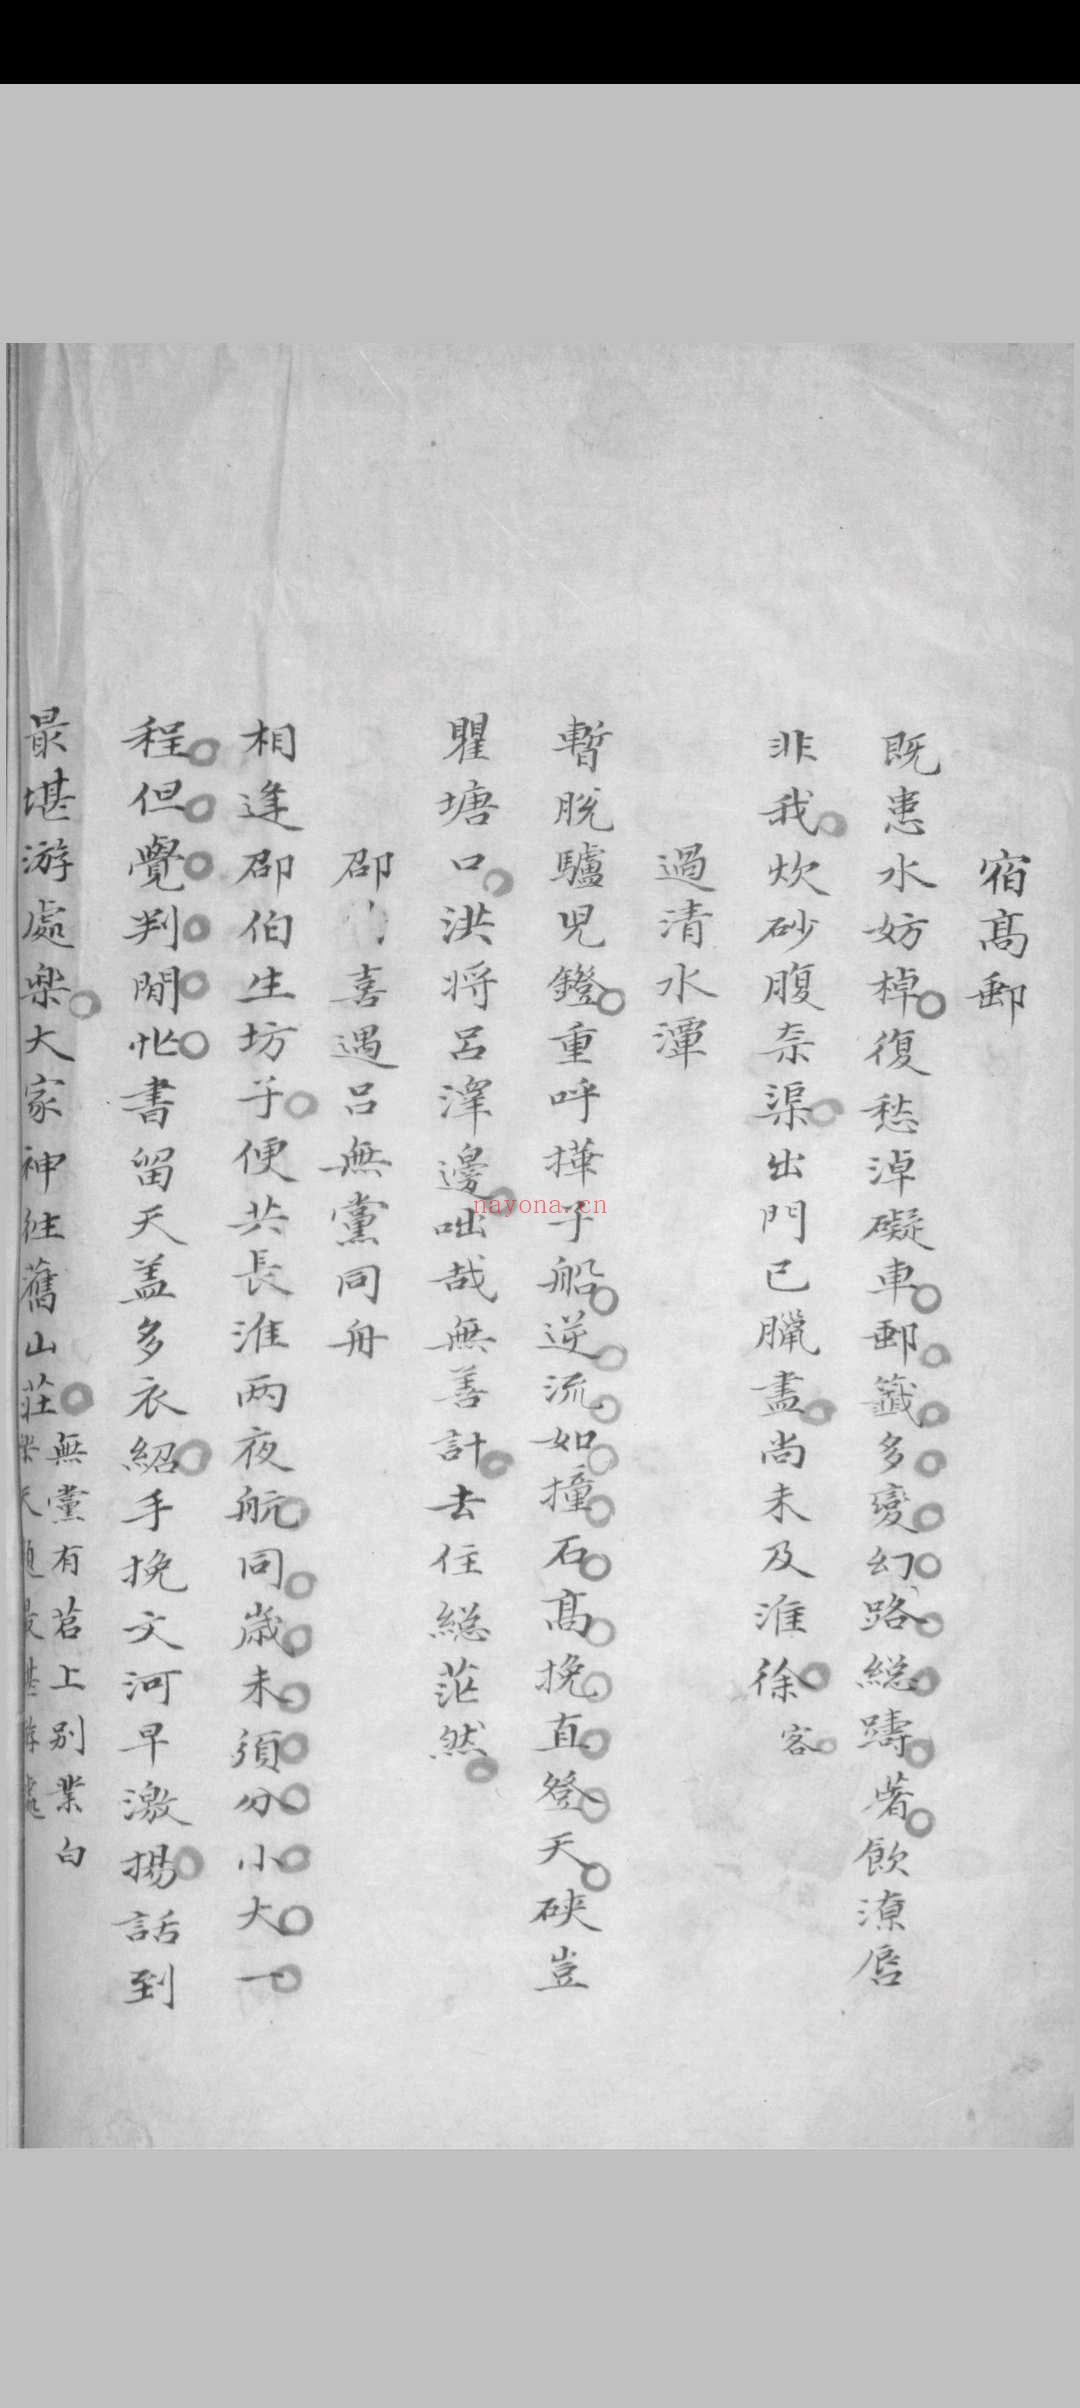 宿髙郵
既患水妨棹復愁淖礙車郵籤多變幻路総躊著飲潦唇
非我炊砂腹柰渠出門已臘盡尚未及淮徐客
過清水潭
暫脫驢児鐙重呼攆子船逆流如撞石髙挽直登天硤豈
瞿塘口洪将吕澤邊咄哉無善計去住総茫然
邵喜遇吕無黨同舟
相逢邵伯生坊子便共長淮两夜航同歳未須分小大一
程但覺判閒忙書留天盖多衣紹手挽文河早激揚話到
最堪游處樂大家神往舊山莊
無黨有茗上别業白
nayona.cn